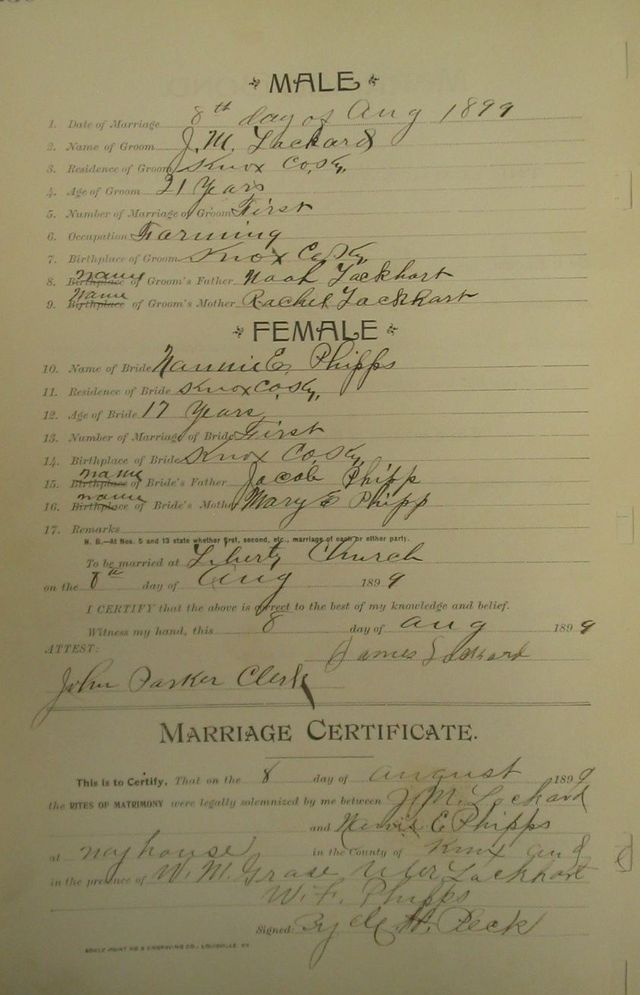 MALE
1. Date of Marriage 8th day of Aug 1899
2. Name of Groom J. M. Lockard
3. Residence of Groom Knox Co. Ky.
4. Age of Groom 21 Years
5. Number of Marriage of Groom First
6. Occupation Farming
7. Birthplace of Groom Knox Co Ky
8. Birthplace name of Groom's Father Noah Lockhart
9. Birthplace Name of Groom's Mother Rachel Lockhart
FEMALE
10. Name of Bride Nannie E. Phipps
11. Residence of Bride Knox Co. Ky.
12. Age of Bride 17 Years
13. Number of Marriage of Bride First
14. Birthplace of Bride Knox Co. Ky
15. Birthplace name of Bride's Father Jacob Phipp
16. Birthplace name of Bride's Mother Mary E Phipp
17. Remarks
N. B.—At Nos. 5 and 13 state whether first, second, etc., marriage of each or either party.
To be married at Liberty Church
on the 8th day of Aug 1899
I CERTIFY that the above is correct to the best of my knowledge and belief.
Witness my hand, this 8 day of Aug 1899
ATTEST:
James Lockard
John Parker Clerk
MARRIAGE CERTIFICATE.
This is to Certify, That on the 8 day of August 1899
the RITES OF MATRIMONY were legally solemnized by me between J. M. Lockard
and Nannie E Phipps
at my house in the County of Knox and
in the presence of W. M. Lockhart
W. F. Phipps
Signed: By H. Peck